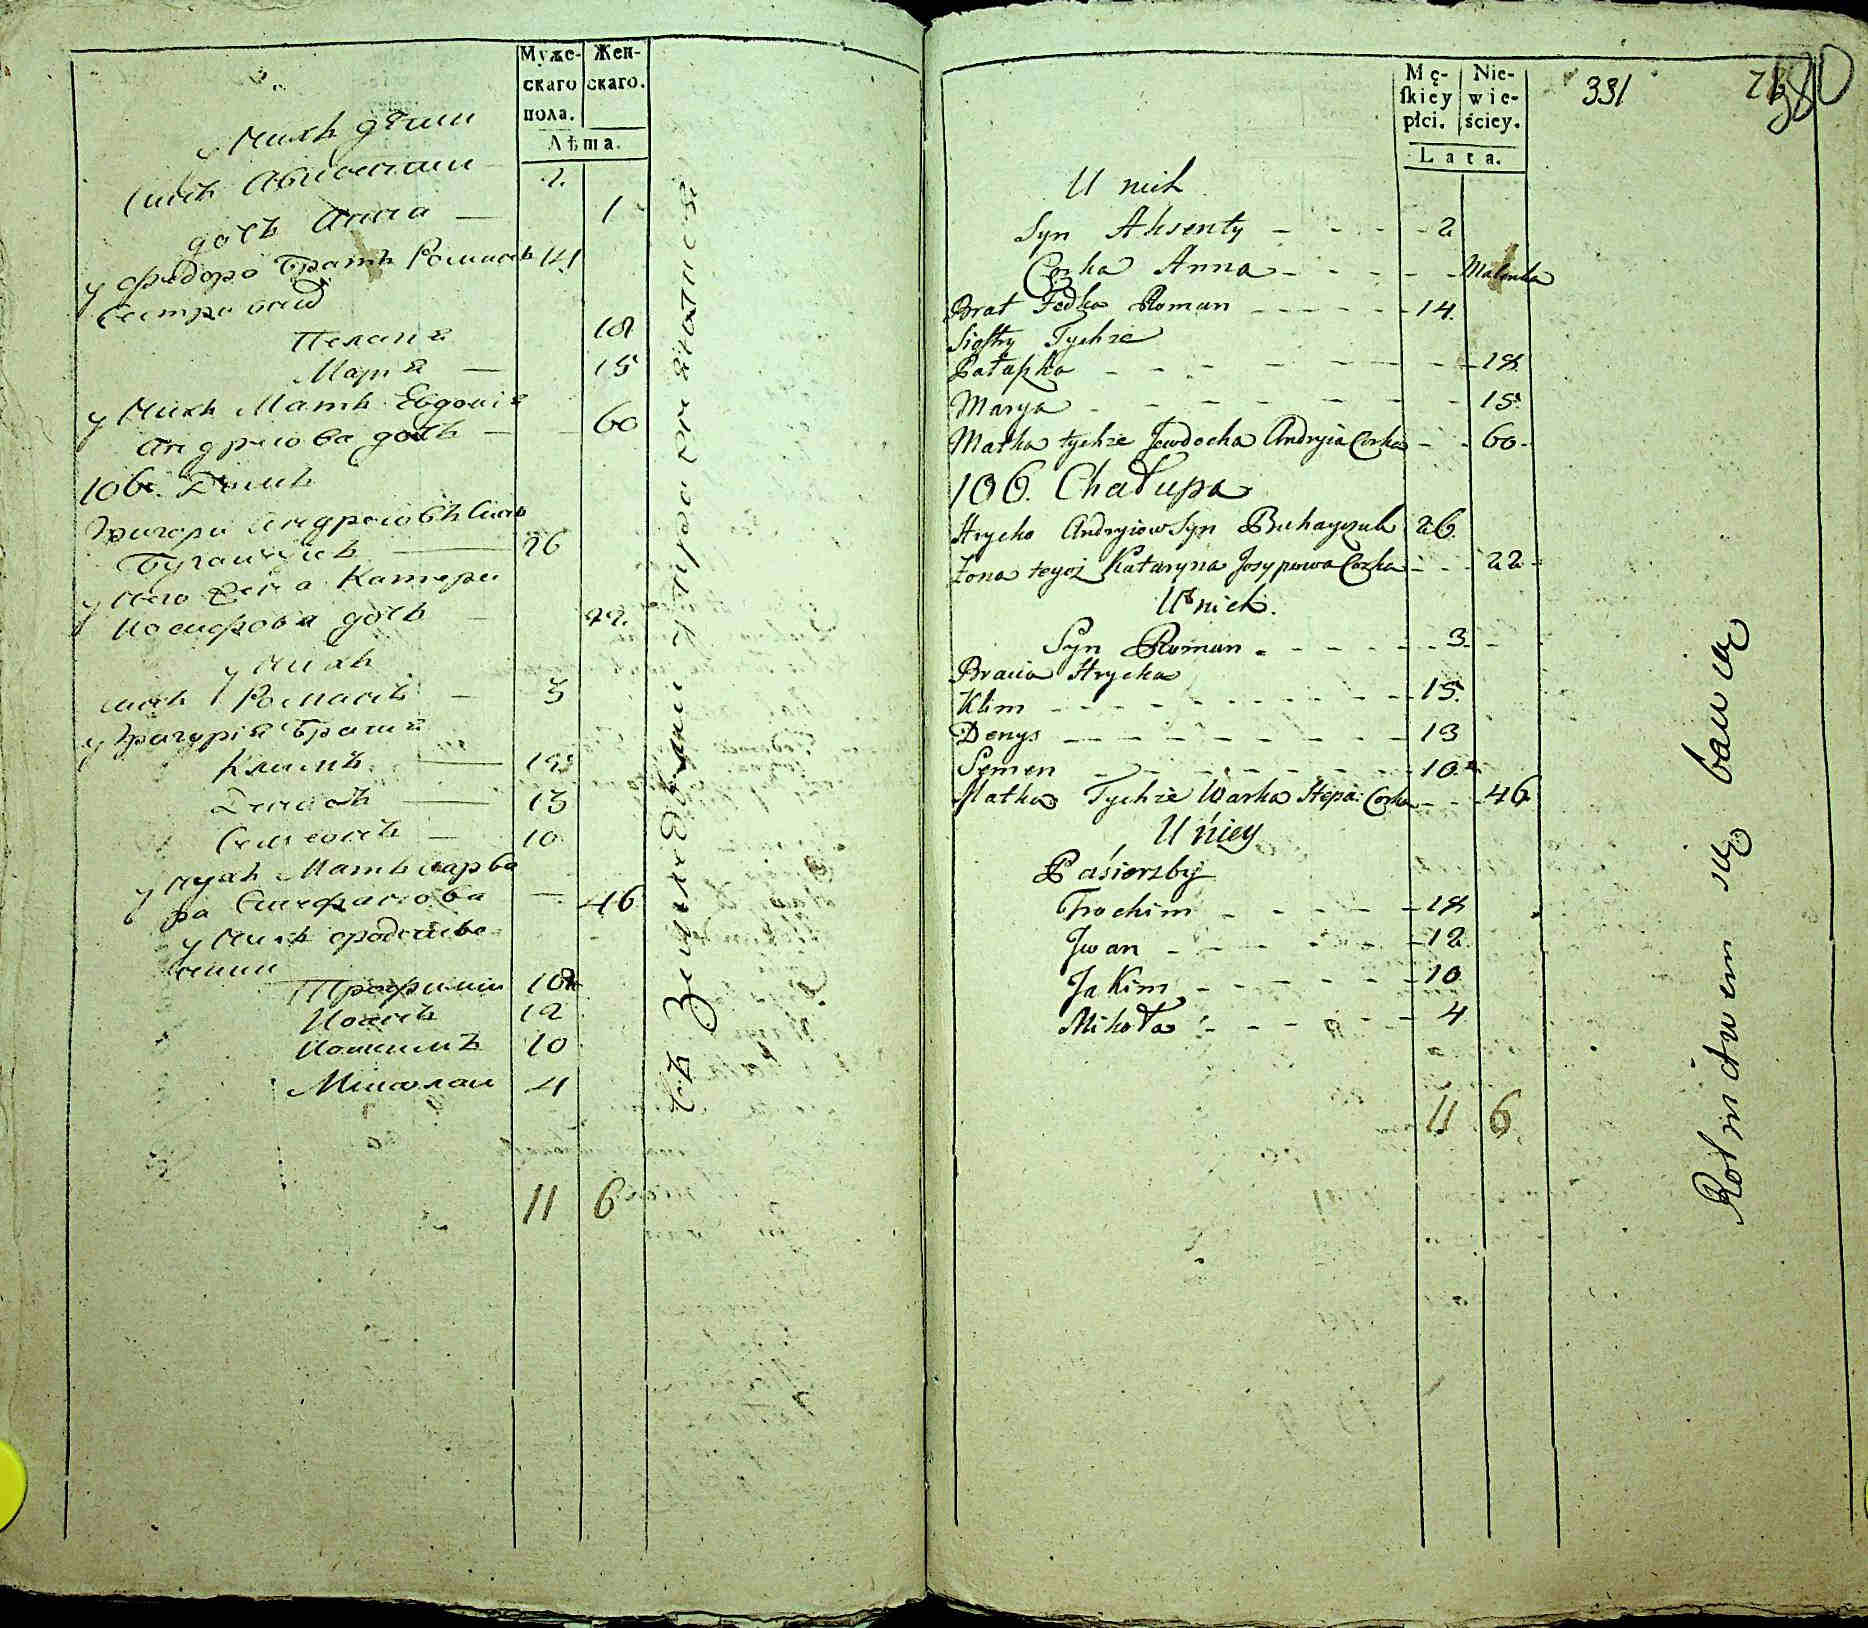 Муже-
скаго
пола.
Жен-
скаго.
Лѣта.
у нихъ дѣти
сынъ Авксентии 2.
дочь Анна — 1
у Федора братъ Романъ 14
Сестри
Пелагия 18
Мария — 15
у нихъ Мать Евдокия
Андреова дочь — 60
106. Домъ
Григори Андреовъ Синъ
26
у него Жена Катери
Иосифова дочь — 22.
у нихъ
синъ Романъ — 3
у Григория братия
Климъ — 15
Денисъ — 13
Семионъ — 10
у нихъ Мать Варва
ра Стефанова — 46
у нихъ
Трофимъ 18
Иоанъ 12
Иоакимъ 10
Миколаи 4
11 6
Mę-
skiey
płci.
Nie-
wie-
ściey.
Lata.
331
U nich
Syn Aksenty - - - - 2
Corka Anna - - - - - Malenka
Brat Fedka Roman - - - - - 14.
Siostry Tychże
Pałapka - - - - - - - 18
Marya - - - - - - - 15.
Matka tychże Jewdocha Andryia Corka - - 60 -
106. Chałupa
Hrycko Andryiow Syn Buhayczuk 26.
Żona tegoż Kataryna Josypowa Corka - - - 22 -
U nich.
Syn Roman - - - - - - 3 -
Bracia Hrycka
Klim - - - - - - - - 15.
Denys - - - - - - - - 13
Semen - - - - - - - - 10
Matka Tychże Warka Stepa: Corka - - - 46
U niey
Pasierzby
Trochim - - - - - 18
Jwan - - - - - 12
Jakim - - - - - 10
Mikoła - - - - - 4
11 6
Rolnictwem się bawią